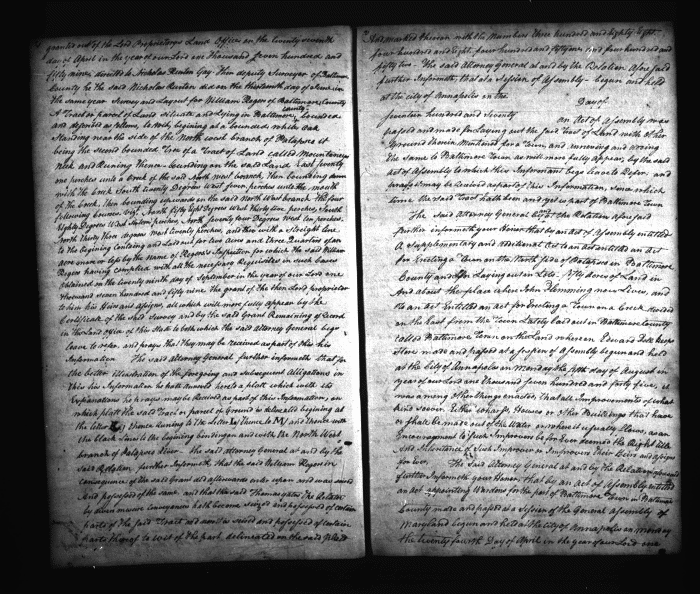 granted out of the Lord Proprietors Land Office on the twenty seventh
day of April in the year of our Lord one thousand seven hundred and
fifty nine directed to Nicholas Ruxton Gay Then deputy Surveyor of Baltimore
County he the said Nicholas Ruxton did on the thirteenth day of June in
the same year Survey and Layout for William Rogers of Baltimore County
A Tract or parcel of Land situate and lying in Baltimore County, bounded
and as follows, to wit, begining at a bounded white oak
Standing near the side of the North west branch of Patapsco it
being the second bounded Tree of a Tract of Land called Mountenays
Neck and Running Thence bounding on the said Land East twenty
one perches unto a Creek of the said North west branch, then bounding down
with the Creek South twenty Degrees West seven perches unto the mouth
of the Creek, then bounding with the said North west branch The four
following courses Vizt. North fifty eight Degrees West Thirty two perches, South
Eighty Degrees West nine perches, North Seventy four Degrees West ten perches
North Thirty three degrees West twenty perches, and then with a Streight line
to the begining containing and Laid out for two acres and three Quarters of an
acre more or less by the name of Rogers's Inspection for which the said William
Rogers having complied with all the necessary Requisites in such cases
obtained on the twenty ninth day of September in the year of our Lord one
thousand seven hundred and fifty nine the grant of the then Lord proprietor
to him his Heirs and assigns all which will more fully appear by the
Certificate of the said Survey and by the said Grant Remaining of Record
in the Land office of this State to both which the said attorney General begs
leave to refer, and prays that They may be received as part of this his
Information The said Attorney General further informeth that for
the better illustration of the foregoing and subsequent Allegations in
This his Information he hath annexed hereto a platt which with its
Explanations he prays may be Received as part of this Information, on
which platt the said Tract or parcel of Ground is delineated begining at
the letter thence Runing to the letter thence to and thence with
the black lines to the begining binding on and with the North West
branch of Patapsco River The said attorney General at and by the
said Relation, further Informeth that the said William Rogers in
consequence of the said Grant did afterwards enter upon and was seized
And possessed of the same, and that the said Thomas Yates The Relator
by divers mesne Conveyances hath become seized and possessed of certain
parts of the said Tract and now is seized and possessed of certain
parts thereof to West of the part delineated on the said platt
And marked thereon with the Numbers three hundred and eighty eight
four hundred and eight, four hundred and fifty one, and four hundred and
fifty two. The said Attorney General at and by the Relation aforesaid
further Informeth, that at a Session of Assembly begun and held
at the City of Annapolis on the
Day of
Seventeen hundred and Seventy an Act of Assembly was
passed and made for Laying out the said Tract of Land with other
Ground therein Mentioned for a Town and
The same to Baltimore Town as will more fully appear, by the said
act of Assembly to which This Informant begs leave to Refer, and
prays it may be received as part of this Information, Since which
time the said Tract hath been and yet is part of Baltimore Town
The said Attorney General by the Relation aforesaid
further informeth your Honors that by an act of Assembly entitled
A Supplementary and additional Act to an act entitled an act
for Erecting a Town on the North side of Patapsco in Baltimore
County and for Laying out in Lots Sixty acres of Land in
And about the place where John Flemming now Lives, and
to an Act Entitled an act for Erecting a Town on a Creek divided
on the East from the Town Lately laid out in Baltimore County
called Baltimore Town on the Land whereon Edward Dell keeps
Store made and passed at a Session of Assembly begun and held
at the City of Annapolis on Monday the fifth day of August in
year of our Lord one Thousand Seven hundred and forty five, it
was among other things enacted That all Improvements of what
kind soever Either Wharfs Houses or other Buildings that have
or shall be made out of the Water or where it usually flows, as an
Encouragement to such Improvers be for Ever deemed the Right title
And Inheritance of such Improver or Improvers Their Heirs and assigns
for Ever, The said Attorney General at and by the Relation aforesaid
further Informeth your Honors that by an Act of Assembly entitled
an act appointing Wardens for the port of Baltimore Town in Baltimore
County made and passed at a Session of the General Assembly of
Maryland begun and held at the City of Annapolis on Monday
the twenty fourth Day of April in the year of our Lord one